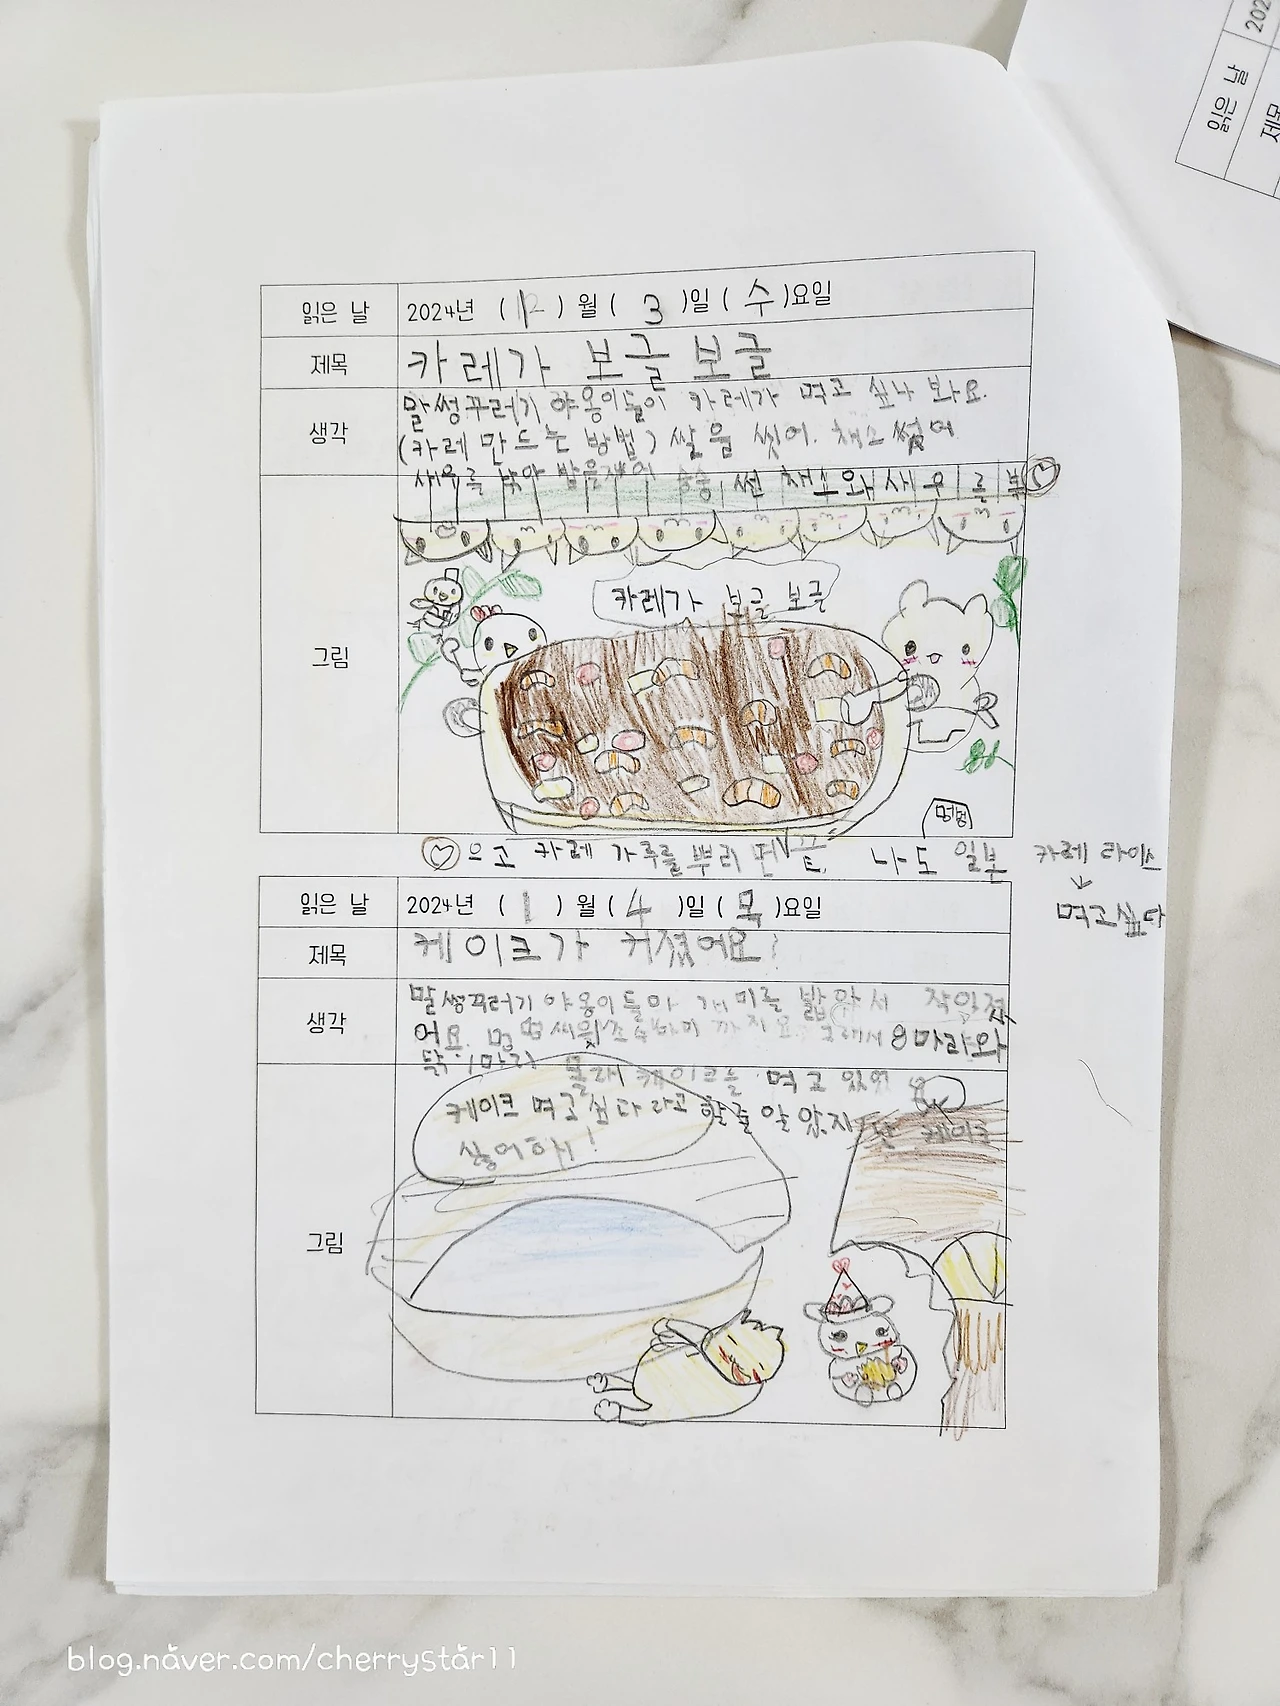 읽은 날 2024년 (12) 월 ( 3 )일 ( 수 )요일
제목 카레가 보글 보글
생각 말썽꾸러기 야옹이들이 카레가 먹고 싶나 봐요.
(카레 만드는 방법) 쌀을 씻어. 채소 썰어
새우를 밥을 송송 썬 채소와 새우를 볶
그림
카레가 보글 보글
멍멍
으고 카레 가루를 뿌리면 끝 나도 일본 카레 라이스
먹고싶다
읽은 날 2024년 ( 1 ) 월 ( 4 )일 ( 목 )요일
제목 케이크가 커졌어요!
생각 말썽꾸러기 야옹이들이 개미를 밟아서 작아졌
어요. 멍멍씨의 까지요. 그래서 8마리와
닭 1마리 몰래 케이크를 먹고 있었
케이크 먹고싶다 라고 할줄 알았지
싫어하지!
그림
읽은 날
제목
202
blog.naver.com/cherrystar11